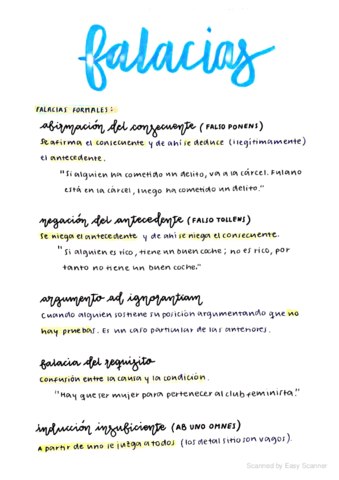 falacias
FALACIAS FORMALES:
afirmación del consecuente (FALSO PONENS)
Se afirma el consecuente y de ahí se deduce (ilegítimamente)
el antecedente.
"Si alguien ha cometido un delito, va a la cárcel. Fulano
está en la cárcel, luego ha cometido un delito."
negación del antecedente (FALSO TOLLENS)
Se niega el antecedente y de ahí se niega el consecuente.
"Si alguien es rico, tiene un buen coche; no es rico, por
tanto no tiene un buen coche."
argumento ad ignorantiam
Cuando alguien sostiene su posición argumentando que no
hay pruebas. Es un caso particular de las anteriores.
falacia del requisito
Confusión entre la causa y la condición.
"Hay que ser mujer para pertenecer al club feminista."
inducción insuficiente (AB UNO OMNES)
A partir de uno se juzga a todos (los de tal sitio son vagos).
Scanned by Easy Scanner